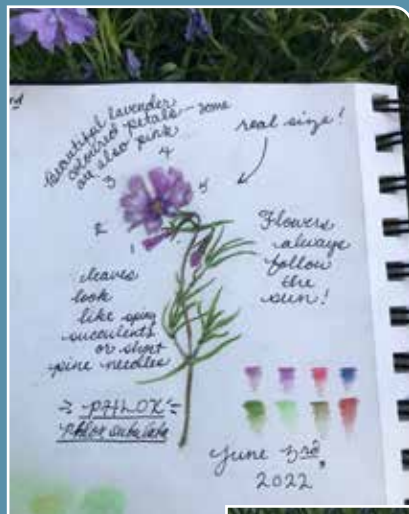 Beautiful lavender
coloured petals - some
are also pink
real size!
1
2
3
4
5
Flowers
always
follow
the
sun!
leaves
look
like spiny
succulents
or short
pine needles
PHLOX
Phlox subulata
June 3rd,
2022